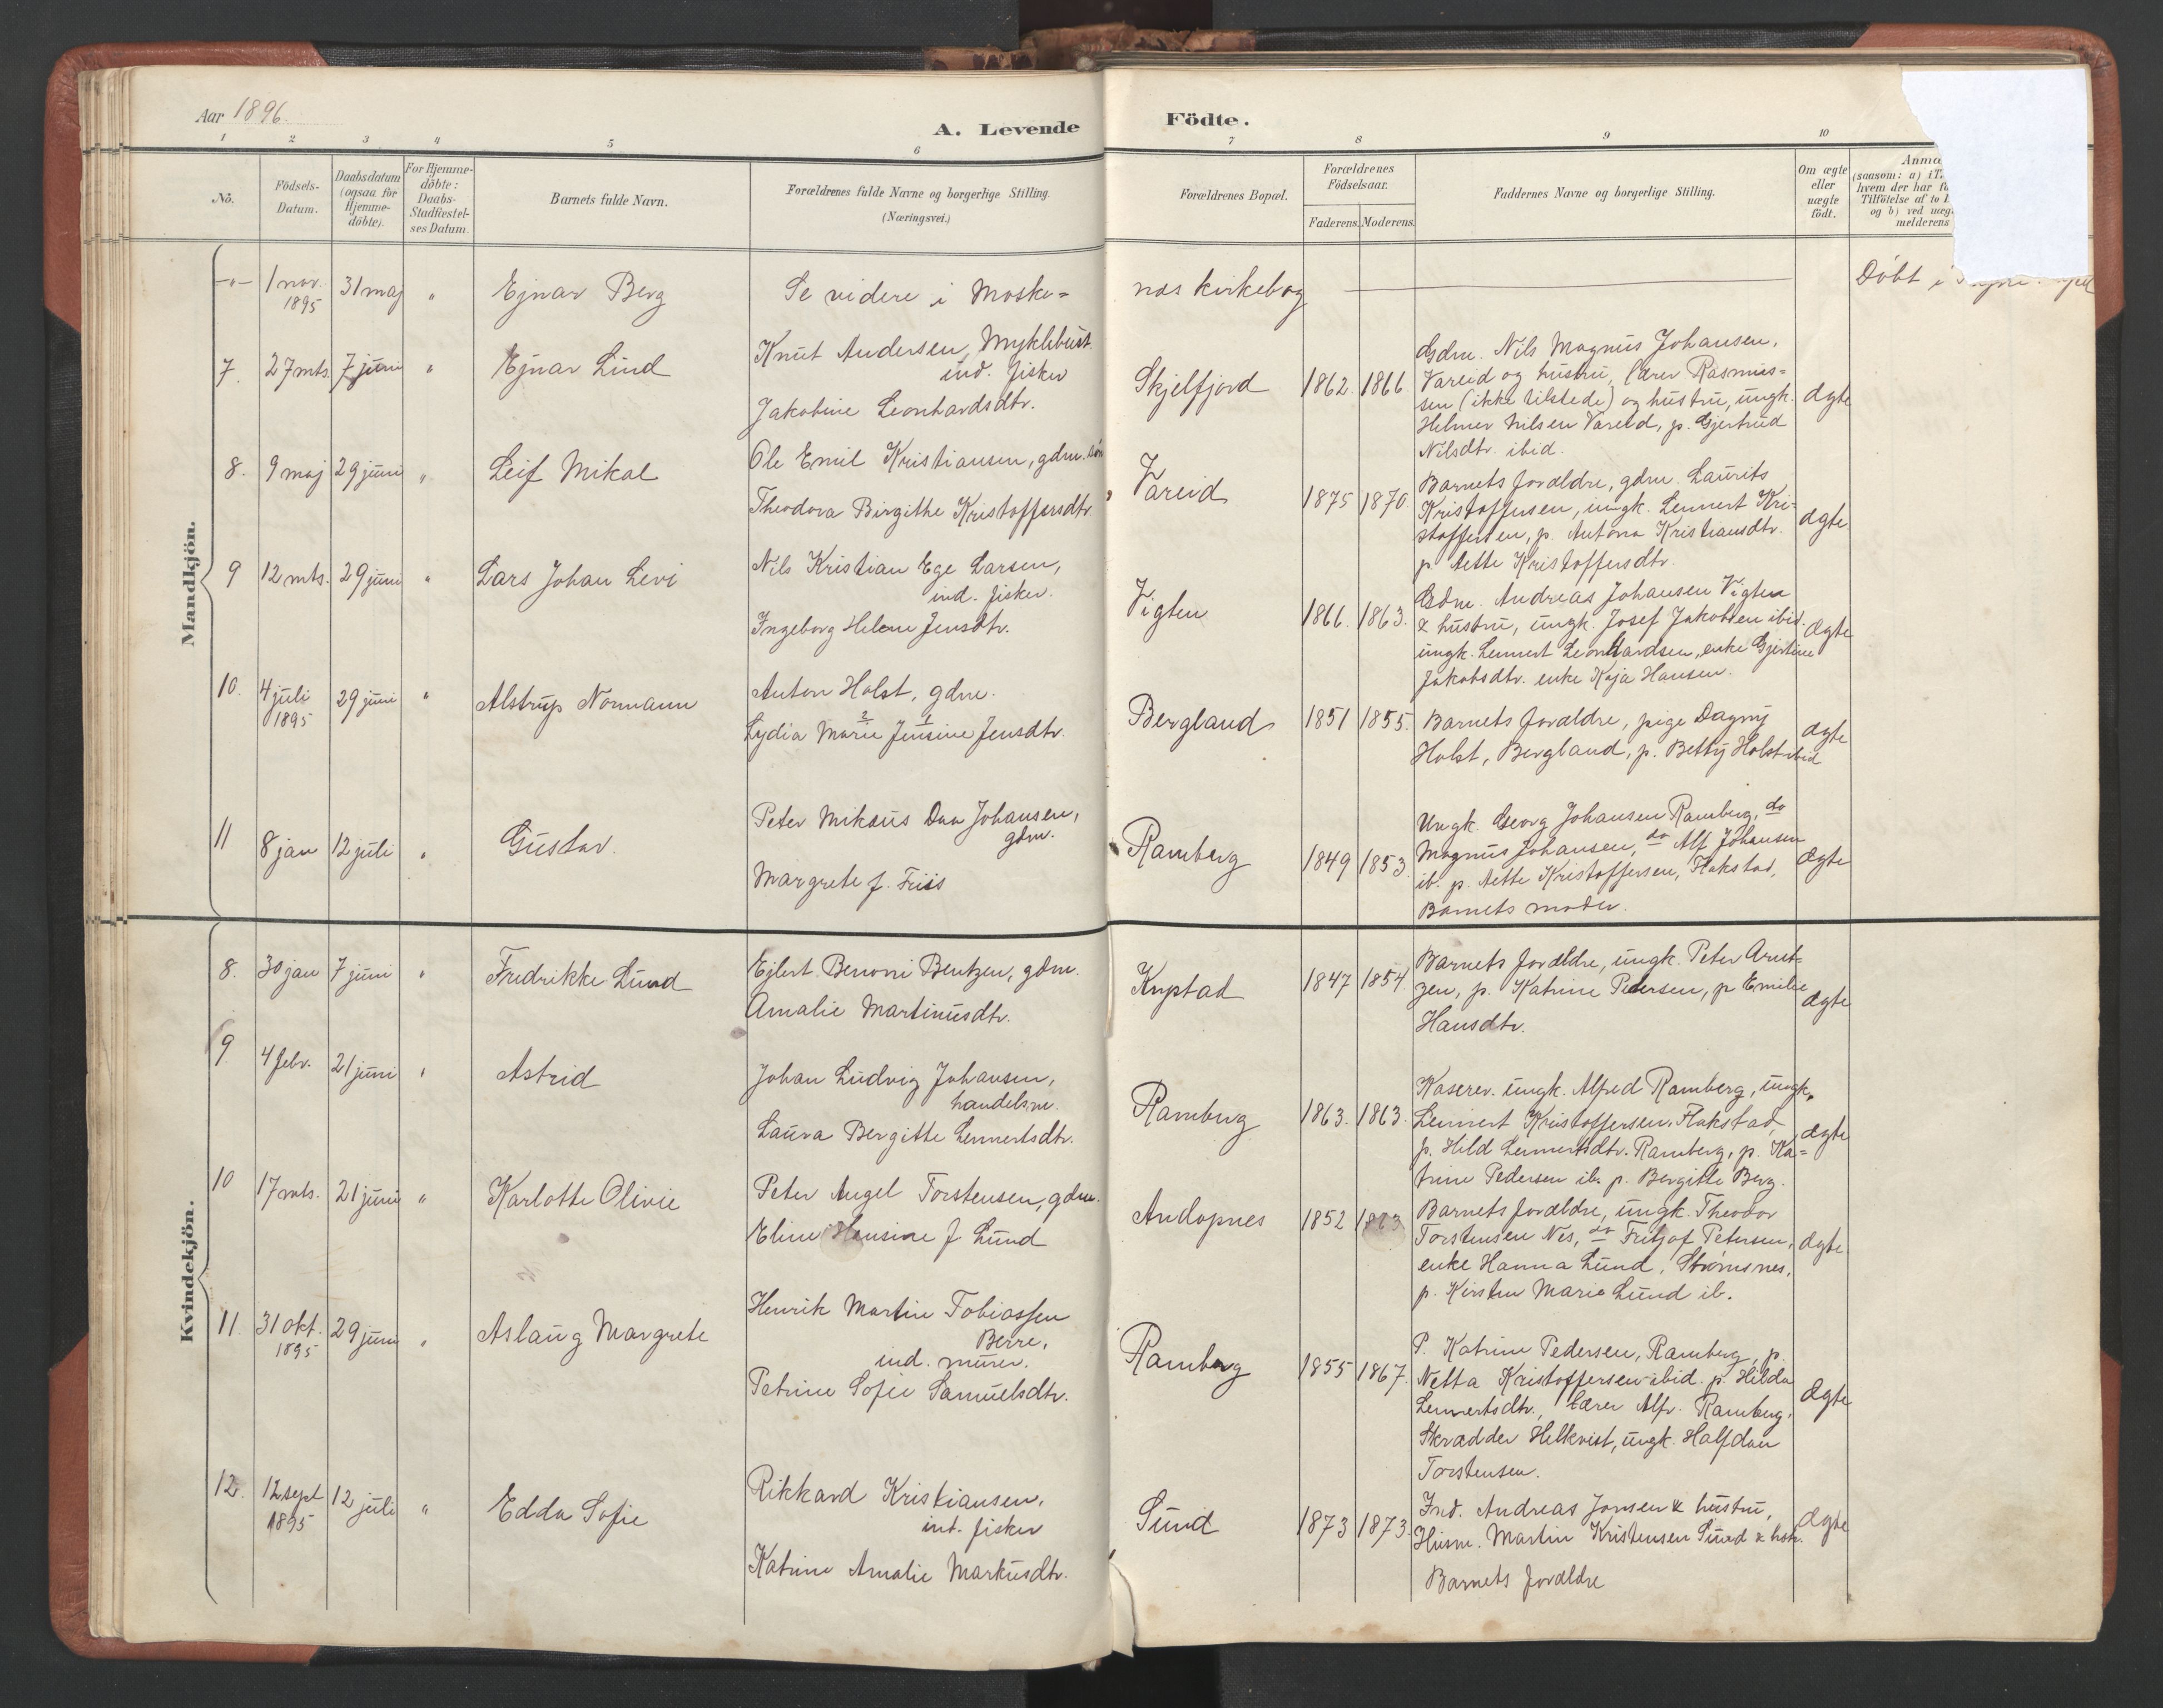 Aar 1896.
A. Levende Födte.
1 2 3 4 5 6 7 8 9 10
Nö.
Födsels-Datum.
Daabsdatum (ogsaa for Hjemme-döbte).
For Hjemme-döbte: Daabs-Stadfæstel-ses Datum.
Barnets fulde Navn.
Forældrenes fulde Navne og borgerlige Stilling.
(Næringsvei.)
Forældrenes Bopæl.
Forældrenes Födselsaar.
Faderens. Moderens.
Faddernes Navne og borgerlige Stilling.
Om ægte eller uægte födt.
(saasom: a)
hvem der har
Tilföielse af to
og b) ved
melderens
Mandkjön.
—"— 1 nov. 1895 31 maj " Ejnar Berg Se videre i Moske=
nes kirkebog
Döbt i
7. 27 mts. 7 juni " Ejnar Lind Knut Andersen, Myklebust
ind. fisker
Jakobine Leonhardsdtr.
Skjelfjord 1862. 1866.
Gdm. Nils Magnus Johansen,
Vareid og hustru, lærer Rasmus=
sen (ikke tilstede) og hustru, ungk.
Helmer Nilsen Vareid, p. Gjertrud
Nilsdtr. ibid.
ægte
8. 9 maj 29 juni " Leif Mikal Ole Emil Kristiansen, gdm. sön
Theodora Birgithe Kristoffersdtr.
Vareid 1875 1870.
Barnets forældre, gdm. Laurits
Kristoffersen, ungk. Lennert Kri-
stoffersen, p. Antona Kristiansdtr.
p. Nette Kristoffersdtr.
ægte
9 12 mts. 29 juni " Lars Johan Levi Nils Kristian Ege Larsen,
ind. fisker.
Ingeborg Helene Jensdtr.
Vigten 1866. 1863.
Gdm. Andreas Johansen Vigten
& hustru, ungk. Josef Jakobsen ibid.
ungk. Lennert Leonhardsen, enke Gjertine
Jakobsdtr. enke Kaja Hansen.
ægte
10. 4 juli 1895 29 juni " Alstrup Normann Anton Holst, gdm.
2 1
Lydia Marie Jensine Jensdtr.
Bergland 1851 1855.
Barnets forældre, pige Dagny
Holst, Bergland, p. Betty Holst ibid
ægte
11 8 jan 12 juli " Gustav. Peter Mikaus Daa Johansen,
gdm.
Margrete f. Friis
Ramberg 1849 1853.
Ungk. Georg Johansen Ramberg, do
Magnus Johansen, do Alf Johansen
ib. p. Nette Kristoffersen, Flakstad,
Barnets moder.
ægte
Kvindekjön.
8. 30 jan 7 juni " Fredrikke Lund Ejlert Benoni Bentzen, gdm.
Amalie Martinusdtr.
Knptad 1847 1854.
Barnets forældre, ungk. Peter Arnt-
zen, p. Katrine Pedersen, p Emilie
Hansdtr.
ægte
9 4 febr. 21 juni " Astrid Johan Ludvig Johansen,
handelsm.
Laura Bergitte Lennertsdtr.
Ramberg 1863. 1863.
Kaserer. ungk. Alfred Ramberg, ungk.
Lennert Kristoffersen, Flakstad,
p. Hild Lennertsdtr. Ramberg, p. Ka=
trine Pedersen ib. p. Bergitte Berg.
ægte
10 17 mts. 21 juni " Karlotte Olivie Peter Angel Torstensen, gdm.
Eline Hansine f Lund
Andopnes 1852
Barnets forældre, ungk. Theodor
Torstensen Nes, do Fritjof Petersen,
enke Hanna Lund, Strömsnes,
p. Kirsten Marie Lund ib.
ægte.
11. 31 okt. 1895 29 juni " Aslaug Margrete Henrik Martin Tobiassen
Berre,
ind. murer.
Petrine Sofie Samuelsdtr.
Ramberg 1855 1867.
P. Katrine Pedersen, Ramberg, p.
Netta Kristoffersen ibid. p. Hilda
Lennertsdtr., lærer Alfr. Ramberg,
Skrædder Helkvist, ungk. Halfdan
Torstensen.
ægte
12. 12 sept 1895 12 juli " Edda Sofie Rikkard Kristiansen,
ind. fisker
Katrine Amalie Markusdtr.
Sund 1873 1873.
Ind. Andreas Jonsen & hustru,
Husm. Martin Kristensen Sund & hstr.
Barnets forældre
ægte